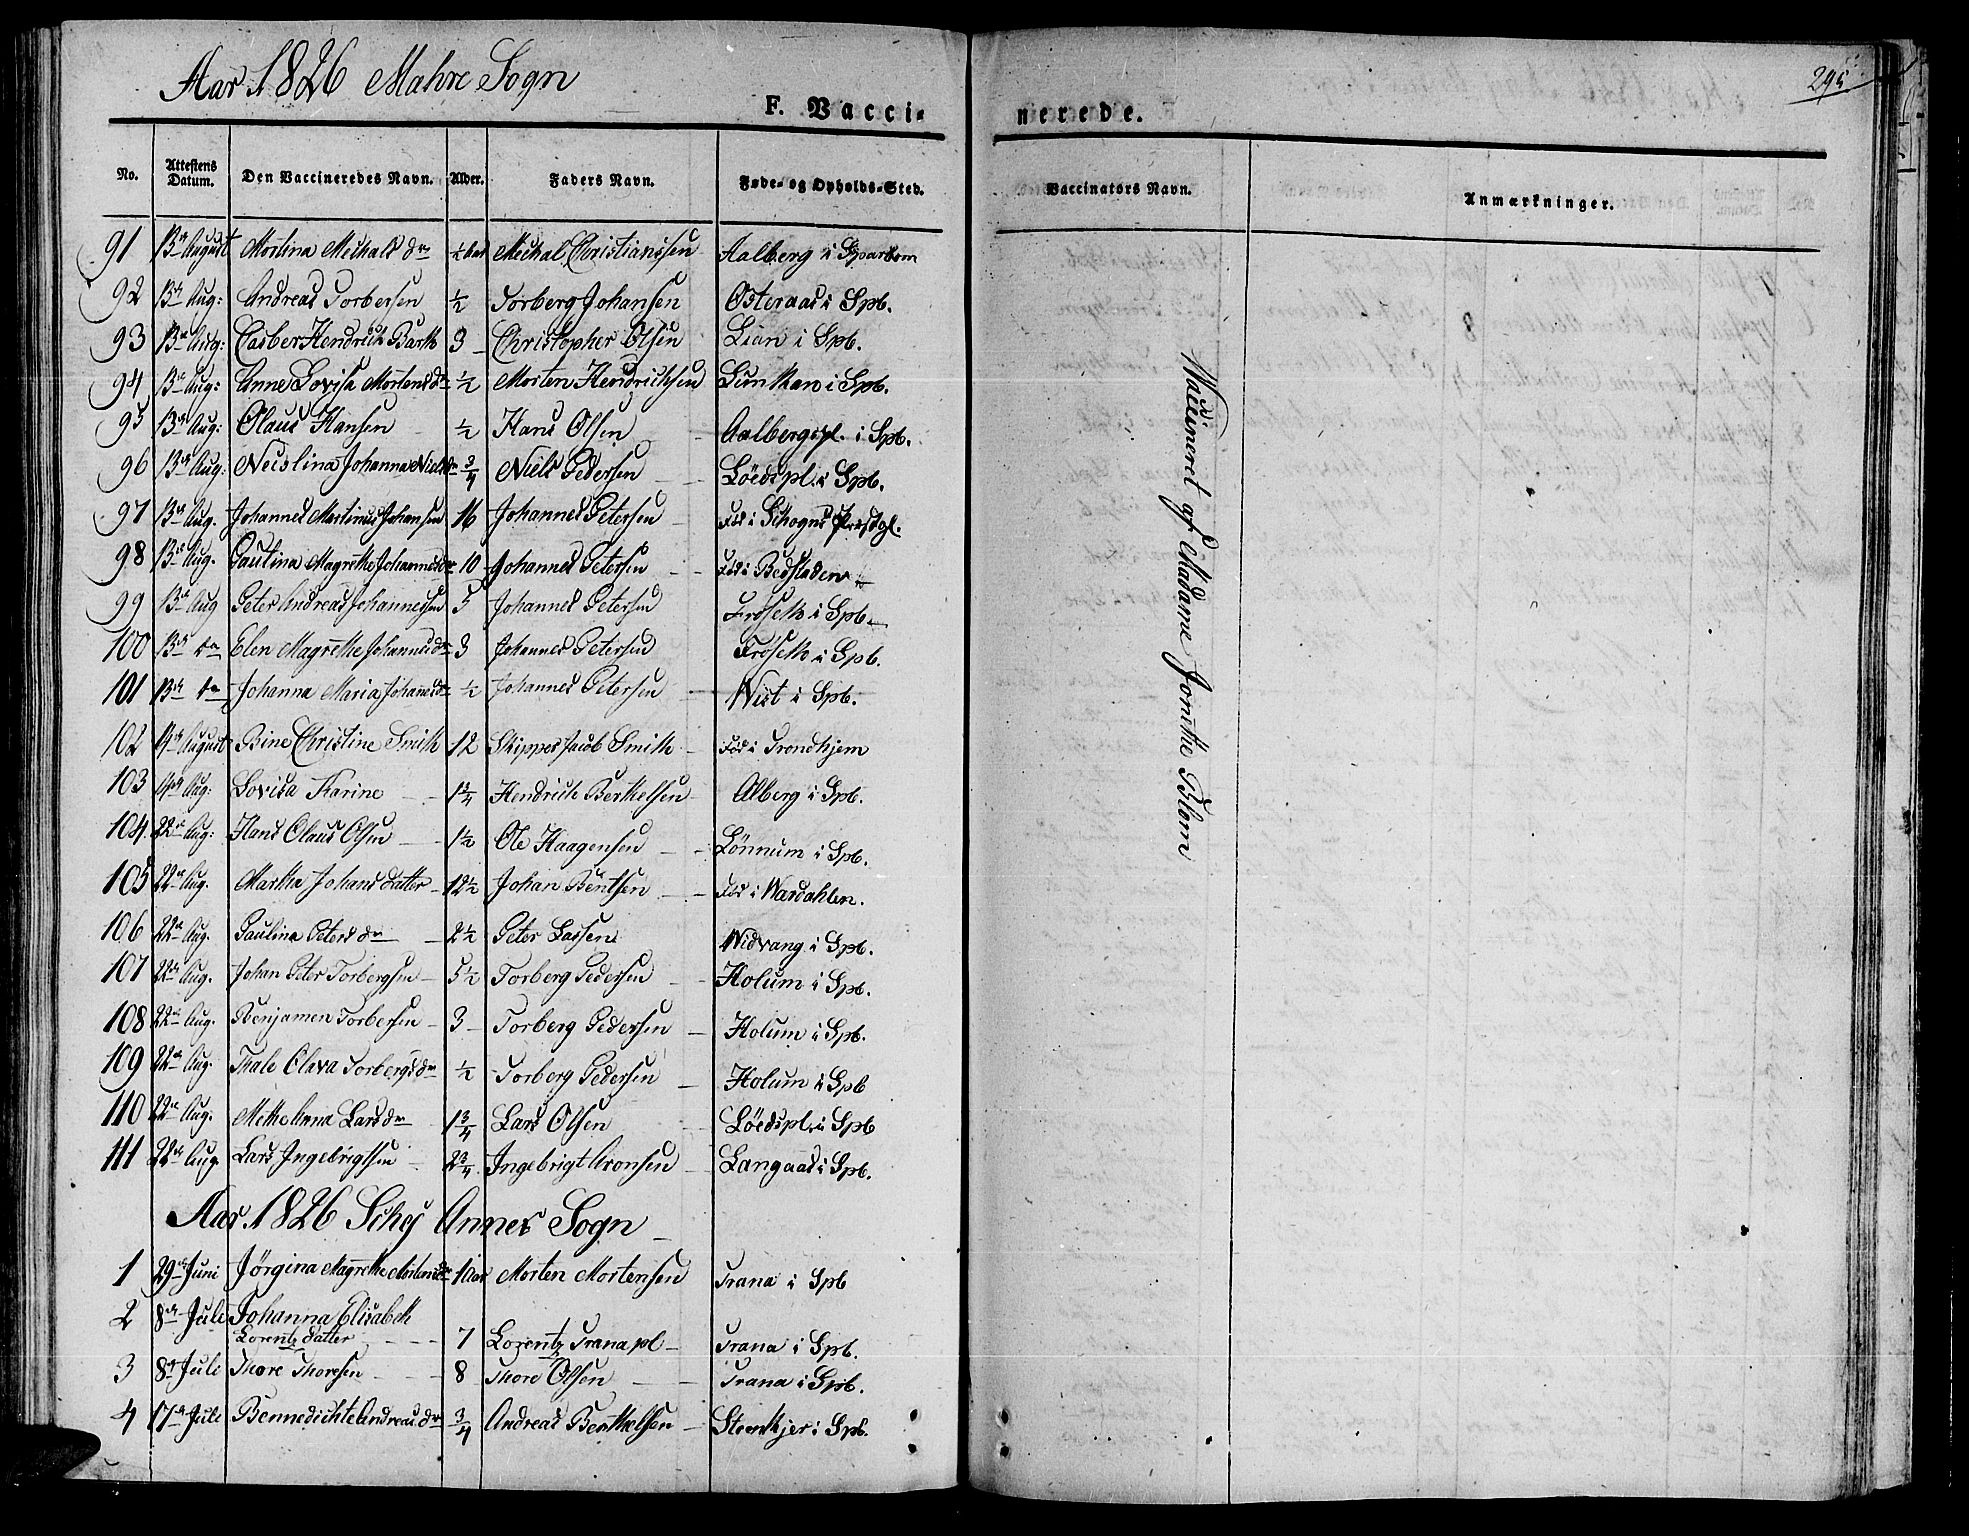 Aar 1826 Mahre Sogn
295
F. Vacci-
nerede.
No. Attestens Datum. Den Vaccineredes Navn. Alder. Faders Navn. Føde- og Opholds-Sted. Vaccinators Navn. Anmærkninger.
91 13de August Mortina Michals dr ½ Aar Michal Christianssen Aalberg i Sparbom
92 13de Aug: Andreas Torbersen ½ Torberg Johansen Østeraas i Spb.
93 13de Aug: Casber Hendrich Barth 3 Christopher Olsen Lian i Spb.
94 13de Aug: Anne Lovisa Mortensdr ½ Morten Hendrichsen Lunkan i Spb.
95 13de Aug: Olaus Hansen ½ Hans Olsen Aalbergspl. i Spb.
96 13de Aug: Neislina Johanna Nielsdr ¾ Niels Pedersen Löedspl. i Spb.
97 13de Aug. Johannes Martinus Johansen 16 Johannes Petersen Fød i Skogns Præstgl.
98 13de Aug. Paulina Magrethe Johannesdr 10 Johannes Petersen Fød i Bedstaden
99 13de Aug Peter Andreas Johannessen 5 Johannes Petersen Fröseth i Spb
100 13de dn Elen Magrethe Johannesdr 3 Johannes Petersen Fröseth i Spb.
101 13de dn Johanna Maria Johansdr ½ Johannes Petersen Wist i Spb.
102 14de August Bine Christine Smith 12 Skipper Jacob Smith Fød i Trondhjem
103 14de Aug: Lovisa Karine 1¾ Hendrich Berthelsen Alberg i Spb.
104 22de Aug: Hans Olaus Olsen 1½ Ole Haagensen Lönnum i Spb.
105 22de Aug. Martha Johans datter 12½ Johan Bentsen Fød i Wærdahlen.
106 22de Aug. Paulina Peters dr 2½ Peter Larsen Widvang i Spb.
107 22de Aug. Johan Peter Torbergsen 5½ Torberg Pedersen Holum i Spb.
108 22de Aug. Benjamen Torbersen 3 Torberg Pedersen Holum i Spb.
109 22de Aug. Thale Olava Torbergsdr ½ Torberg Pedersen Holum i Spb
110 22de Aug. Methe Anna Larsdr 1¾ Lars Olsen Löedspl. i Spb
111 22de Aug. Lars Ingebrigtsen 2¾ Ingebrigt Aronsen Langaas i Spb.
Aar 1826 Schej Annex Sogn
1 29de Juni Jörgina Magrethe Mortensdr 10 aar Morten Mortensen Trana i Spb
2 8de Juli Johanna Elisabeth
Lorentz datter 7 Lorentz Tranapl Trana i Spb.
3 8de Juli Thore Thoresen 8 Thore Olsen Trana i Spb.
4 17de Juli Bennedichte Andreasdr ¾ Andreas Berthelsen Steenkjer i Spb.
Waccineret af Madame Jonithe Blom